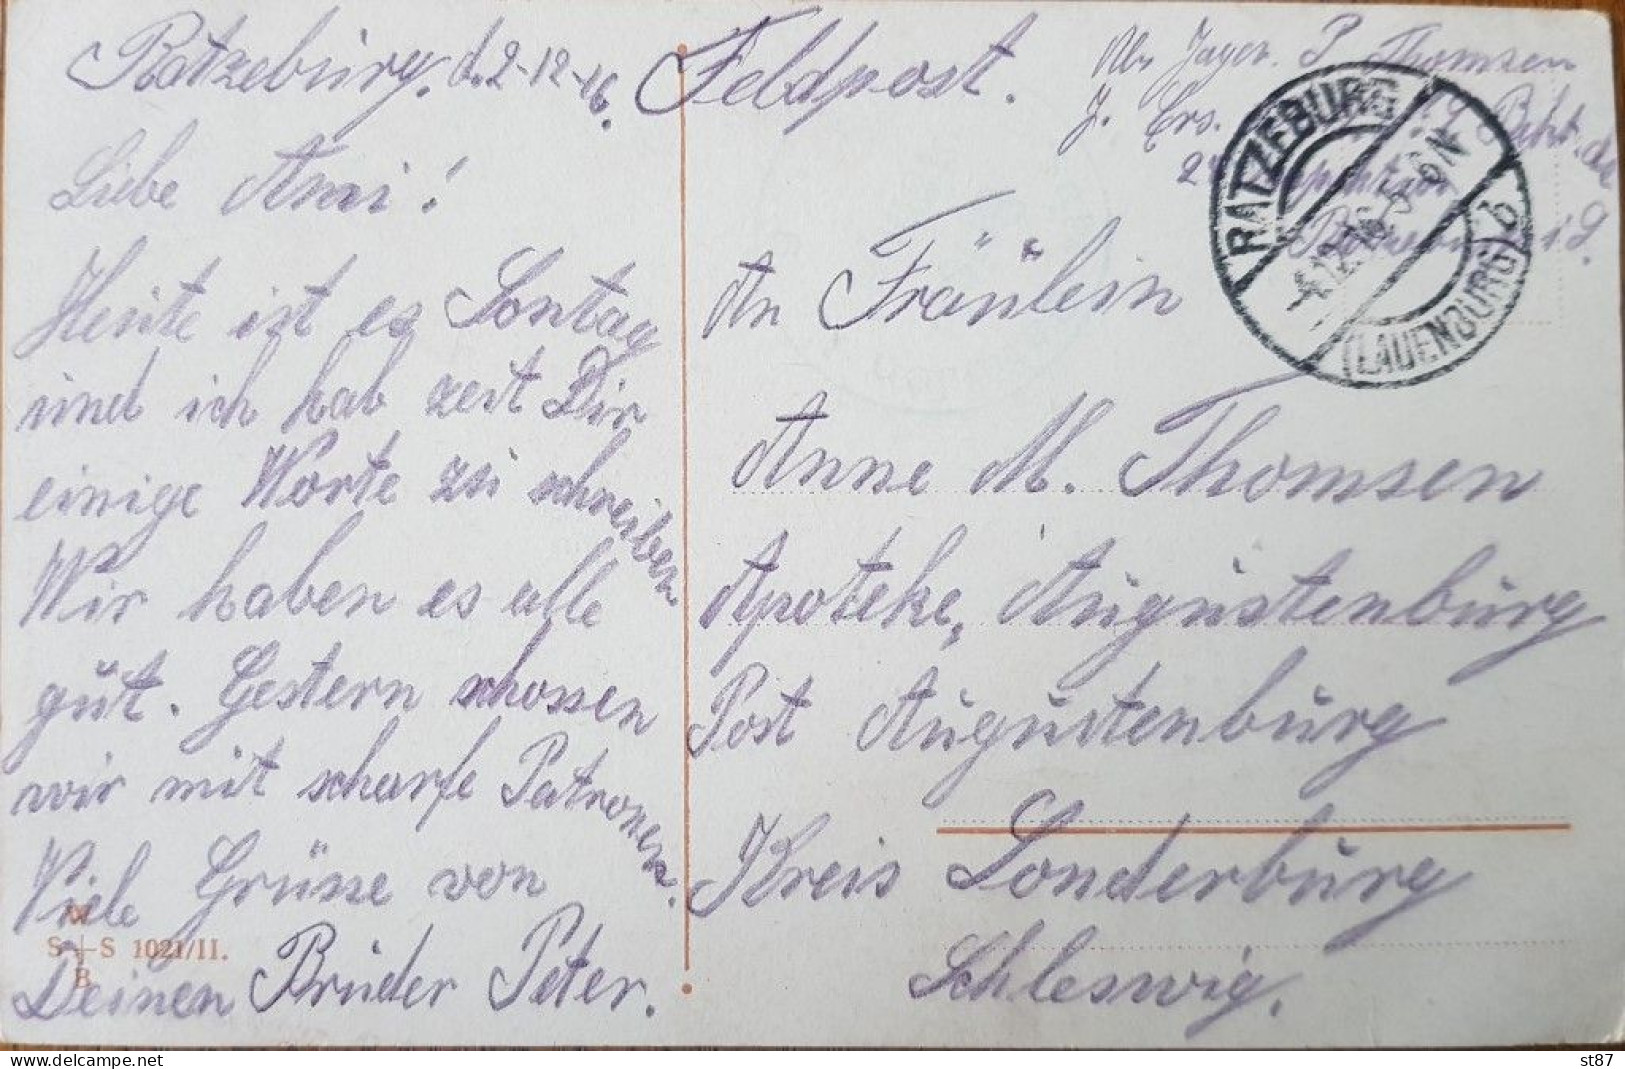 Ratzebúrg. d. 2-12-16.
Liebe Anni!
Heúte ist es Sontag
únd ich hab zeit Dir
einige Worte zú schreiben
Wir haben es alle
gút. Gestern schossen
wir mit scharfe Patronen.
Viele Grüsse von
Deinen Brúder Peter.
M
S+S 1021/II.
B
Feldpost.
Abs Jäger. P. Thomsen
J. Ers.
2
i. L.
RATZEBURG
4.12.16.5-6N
b
(LAUENBURG)
An Fräúlein
Anne M. Thomsen
Apoteke, Aúgústenbúrg
Post Aúgústenbúrg
Kreis Sonderbúrg
Schleswig.
delcampe.net
st87